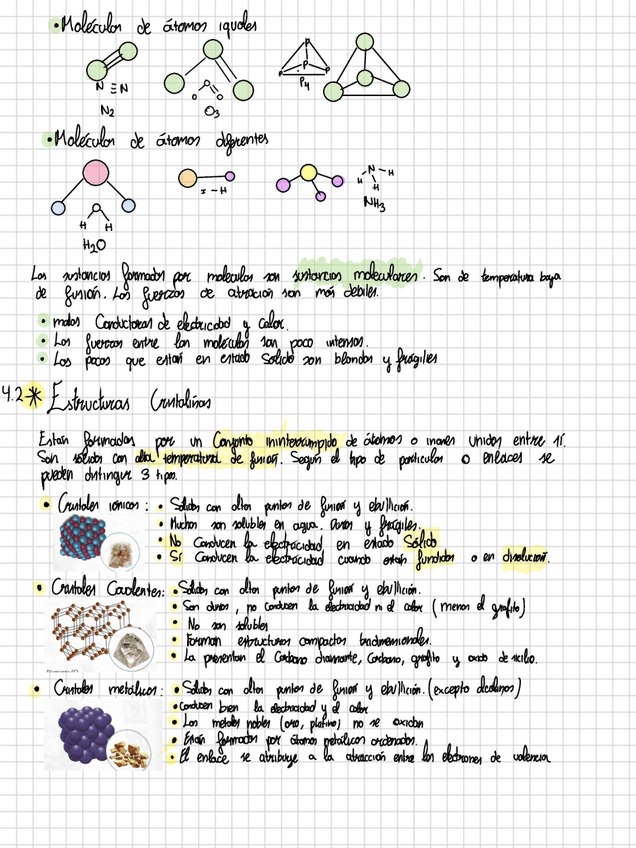 • Moléculas de átomos iguales
N ≡ N
N2
O
O O
O3
P
P P P
P4
• Moléculas de átomos diferentes
O
H H
H2O
I - H
H - N - H
H
NH3
Las sustancias formadas por moléculas son sustancias moleculares. Son de temperatura baja
de fusión. Las fuerzas de atracción son más débiles.
• malos Conductoras de electricidad y calor.
• Las fuerzas entre las moléculas son poco intensas.
• Los pocos que están en estado Sólido son blandos y frágiles
4.2 * Estructuras Cristalinas
Están formadas por un Conjunto ininterrumpido de átomos o iones unidos entre sí.
Son sólidos con alta temperatura de fusión. Según el tipo de partículas o enlaces se
pueden distinguir 3 tipos.
• Cristales iónicos: • Sólidos con altos puntos de fusión y ebullición.
• Muchos son solubles en agua. Duros y frágiles.
• No Conducen la electricidad en estado Sólido
• Sí Conducen la electricidad cuando están fundidos o en disolución.
• Cristales Covalentes: • Sólidos con altos puntos de fusión y ebullición.
• Son duros, no conducen la electricidad ni el calor (menos el grafito)
• No son solubles
• Forman estructuras compactas tridimensionales.
• La presentan el Carbono diamante, Carbono, grafito y óxido de silicio.
• Cristales metálicos: • Sólidos con altos puntos de fusión y ebullición. (excepto alcalinos)
• Conducen bien la electricidad y el calor
• Los metales nobles (oro, platino) no se oxidan
• Están formados por átomos metálicos ordenados.
• El enlace se atribuye a la atracción entre los electrones de valencia